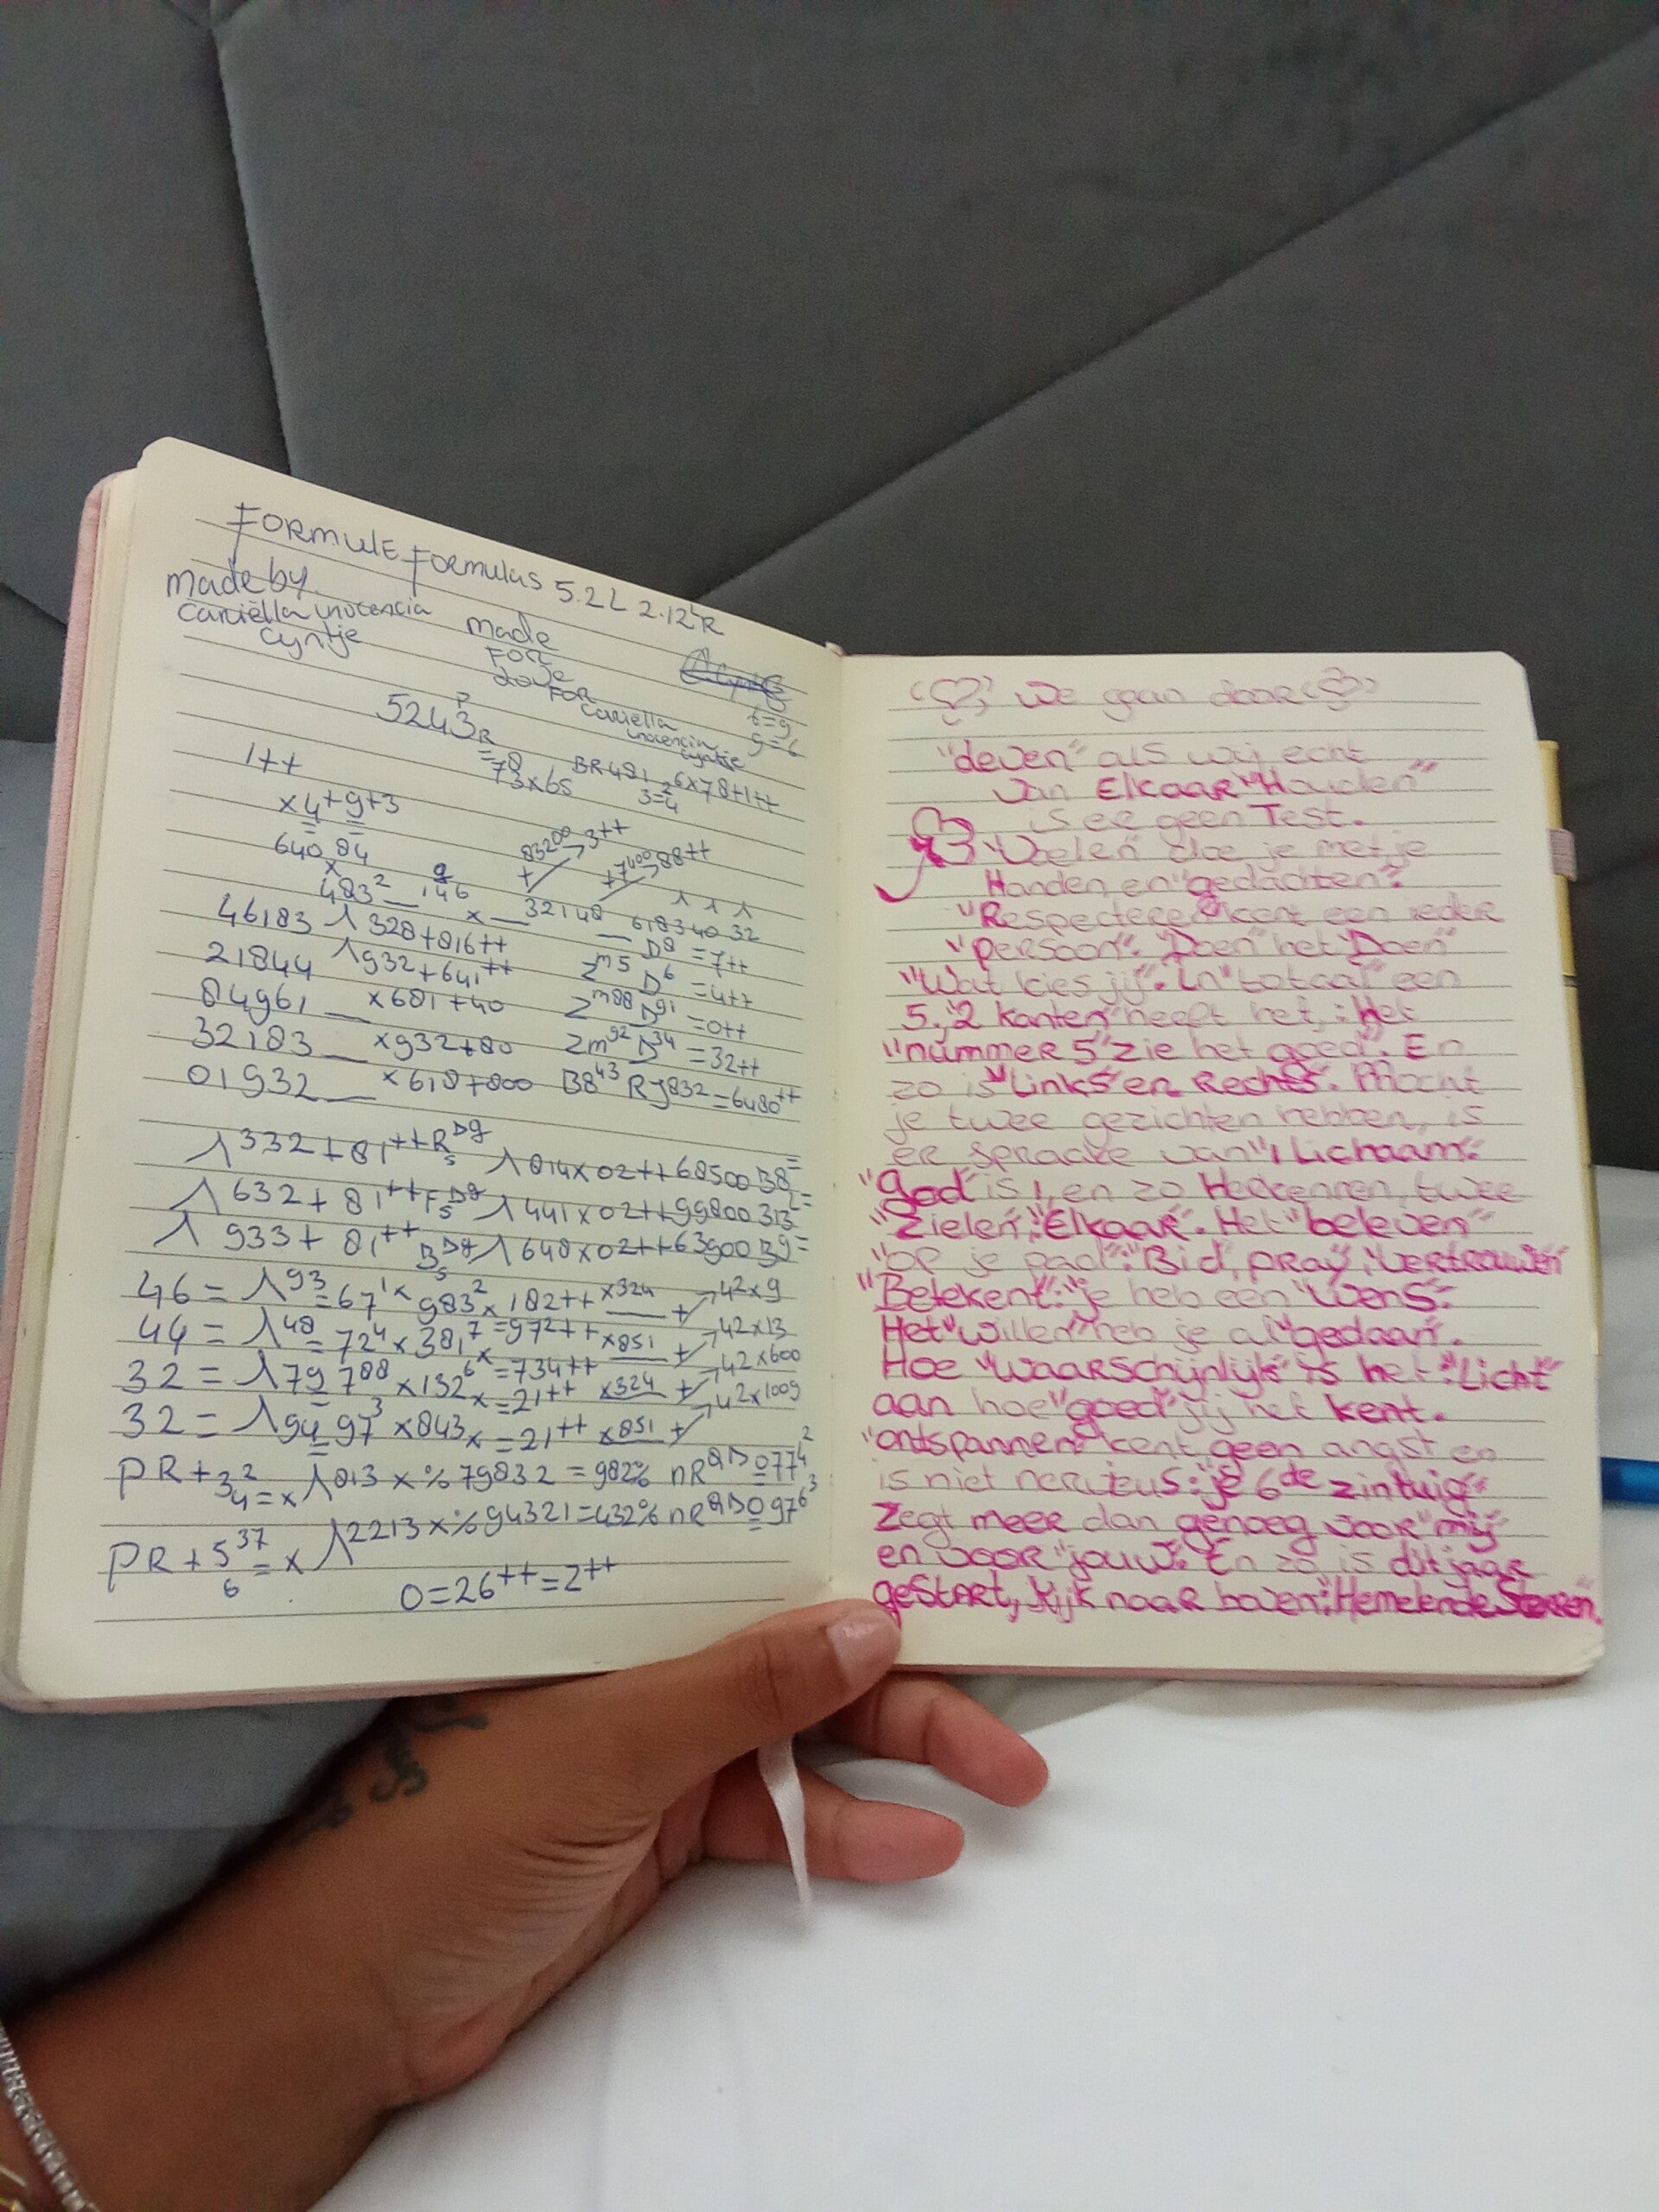 FORMULE Formulas 5.2L 2.12 R
made by
Cariëlla inocencia
Cyntje
made
FOR
love
FOR
Cariella
inocencia
cyntje
6=9
9=6
5243 R
=78
73x65
BR481
3=4
6x78+1++
1++
x4+9+3
640 84
x
483² 146
83200 3++
+7400 88++
x 32148
618340 32
46183 λ328+816++
D8 =7++
21844 λ932+641++
Zm5 D6 =4++
84961 x681+40
Zm88 D91 =0++
32183 x932+80
Zm92 D34 =32++
01932 x618+800 B8 43 R9832=6480++
λ332+81++R λ814x02++68500B8=
λ632+81++F λ441x02++99800313=
λ933+81++B λ648x02++63900B9=
46=λ93=67 x 983² x 182++ x324 + 42x9
44=λ48=72⁴x381⁷=972++ x851 + 42x13
32=λ79 788 x132⁶x=734++ x324 + 42x600
32=λ94 97³ x843 x=21++ x851 + 42x1009
PR+3²4=x λ813x%79832=982% nR 0774²
PR+5³⁷6=x λ2213x%94321=432% nR 0976³
0=26++=2++
We gaan door
"deven" als wij echt
van Elkaar "Houden"
is ee geen Test.
"Voelen" doe je met je
Handen en "gedachten".
"Respecteren" kent een ieder
"persoon". "Doen" het "Doen"
"Wat kies jij". In "totaal" een
5.,2 kanten heeft het,: Het
"nummer 5" zie het goed". En
zo is "Links" en Rechts". Mocht
je twee gezichten hebben, is
er spraake van "1 Lichaam".
"God" is 1, en zo Herkennen, twee
"Zielen", "Elkaar". Het "beleven"
"op je pad": "Bid, pray, "vertrouwen"
"Betekent": "je heb een "wens".
Het "willen" heb je al "gedaan".
Hoe "waarschijnlijk" is het "Licht"
aan hoe "goed" jij het kent.
"ontspannen" kent geen angst en
is niet nerveus: je 6de zintuig"
Zegt meer dan genoeg voor "mij
en voor "jouw". En zo is dit jaar
geStart, Kijk naar boven": Hemelende Sterren.